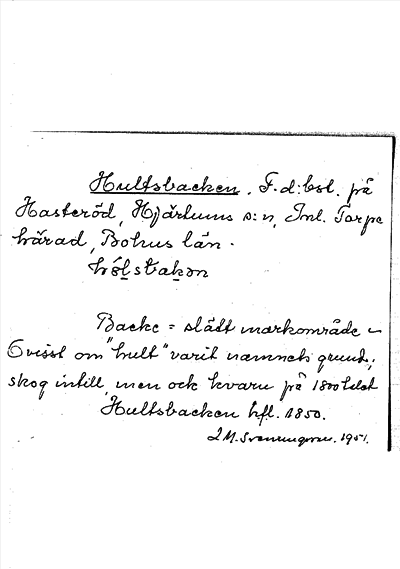 Hultsbacken. F.d. bst. på
Hasteröd, Hjärtums s:n, Inl. Torpe
härad, Bohus län.
hólstakən
Backe = slätt markområde -
Ovisst om "hult" varit namnets grund;
skog intill, men ock kvarn på 1800 talet
Hultsbacken hfl. 1850.
1951.